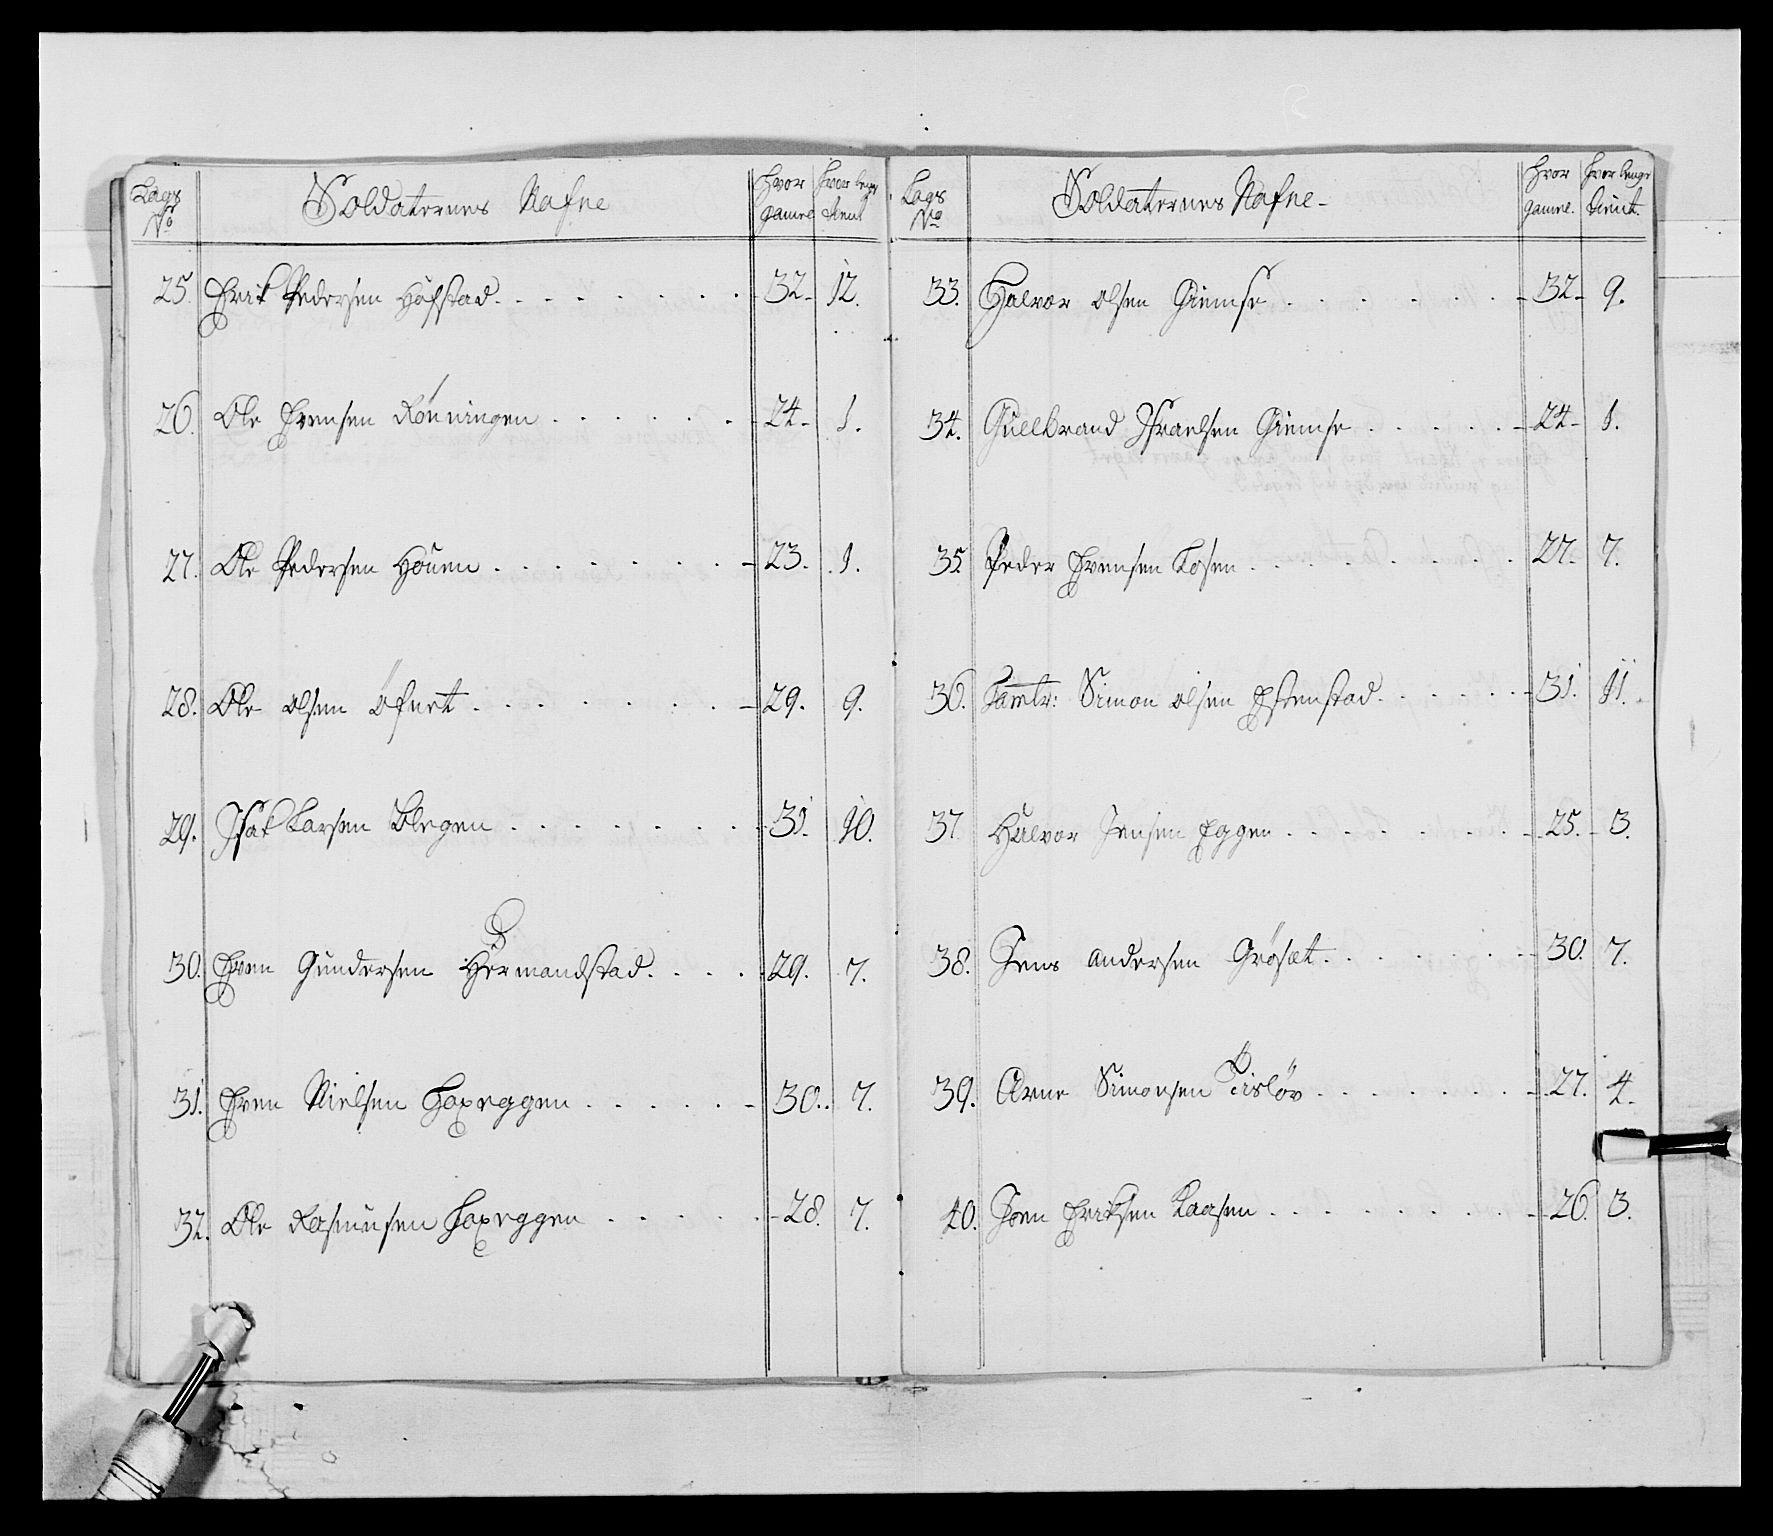 Lags No Soldaternes Nafne Hvor gamel Hvor lenge tient
25. Erik Pedersen Hofstad 32 12.
26. Ole Evensen Rönningen 24 1.
27. Ole Pedersen Houen 23. 1.
28. Ole Olsen Öfnet 29. 9.
29. Isak Larsen Blegen 31. 10.
30. Even Gundersen Hermandstad 29. 7.
31. Even Nielsen Foxeggen 30. 7.
32. Ole Rasmusen Foxeggen 28. 7.
Lags No Soldaternes Nafne Hvor gamel. Hvor lenge tient.
33. Halvor Olsen Giemse 32 9.
34. Gulbrand Israelsen Giemse 24 1.
35 Peder Evensen Kosen 27. 7.
36. Tamb: Simon Olsen Estenstad 31. 11.
37 Halvor Jensen Eggen 25. 3.
38. Jens Andersen Grösæt 30. 7.
39. Arne Simonsen Tislöv 27. 4.
40. Joen Eriksen Kaasen 26. 3.